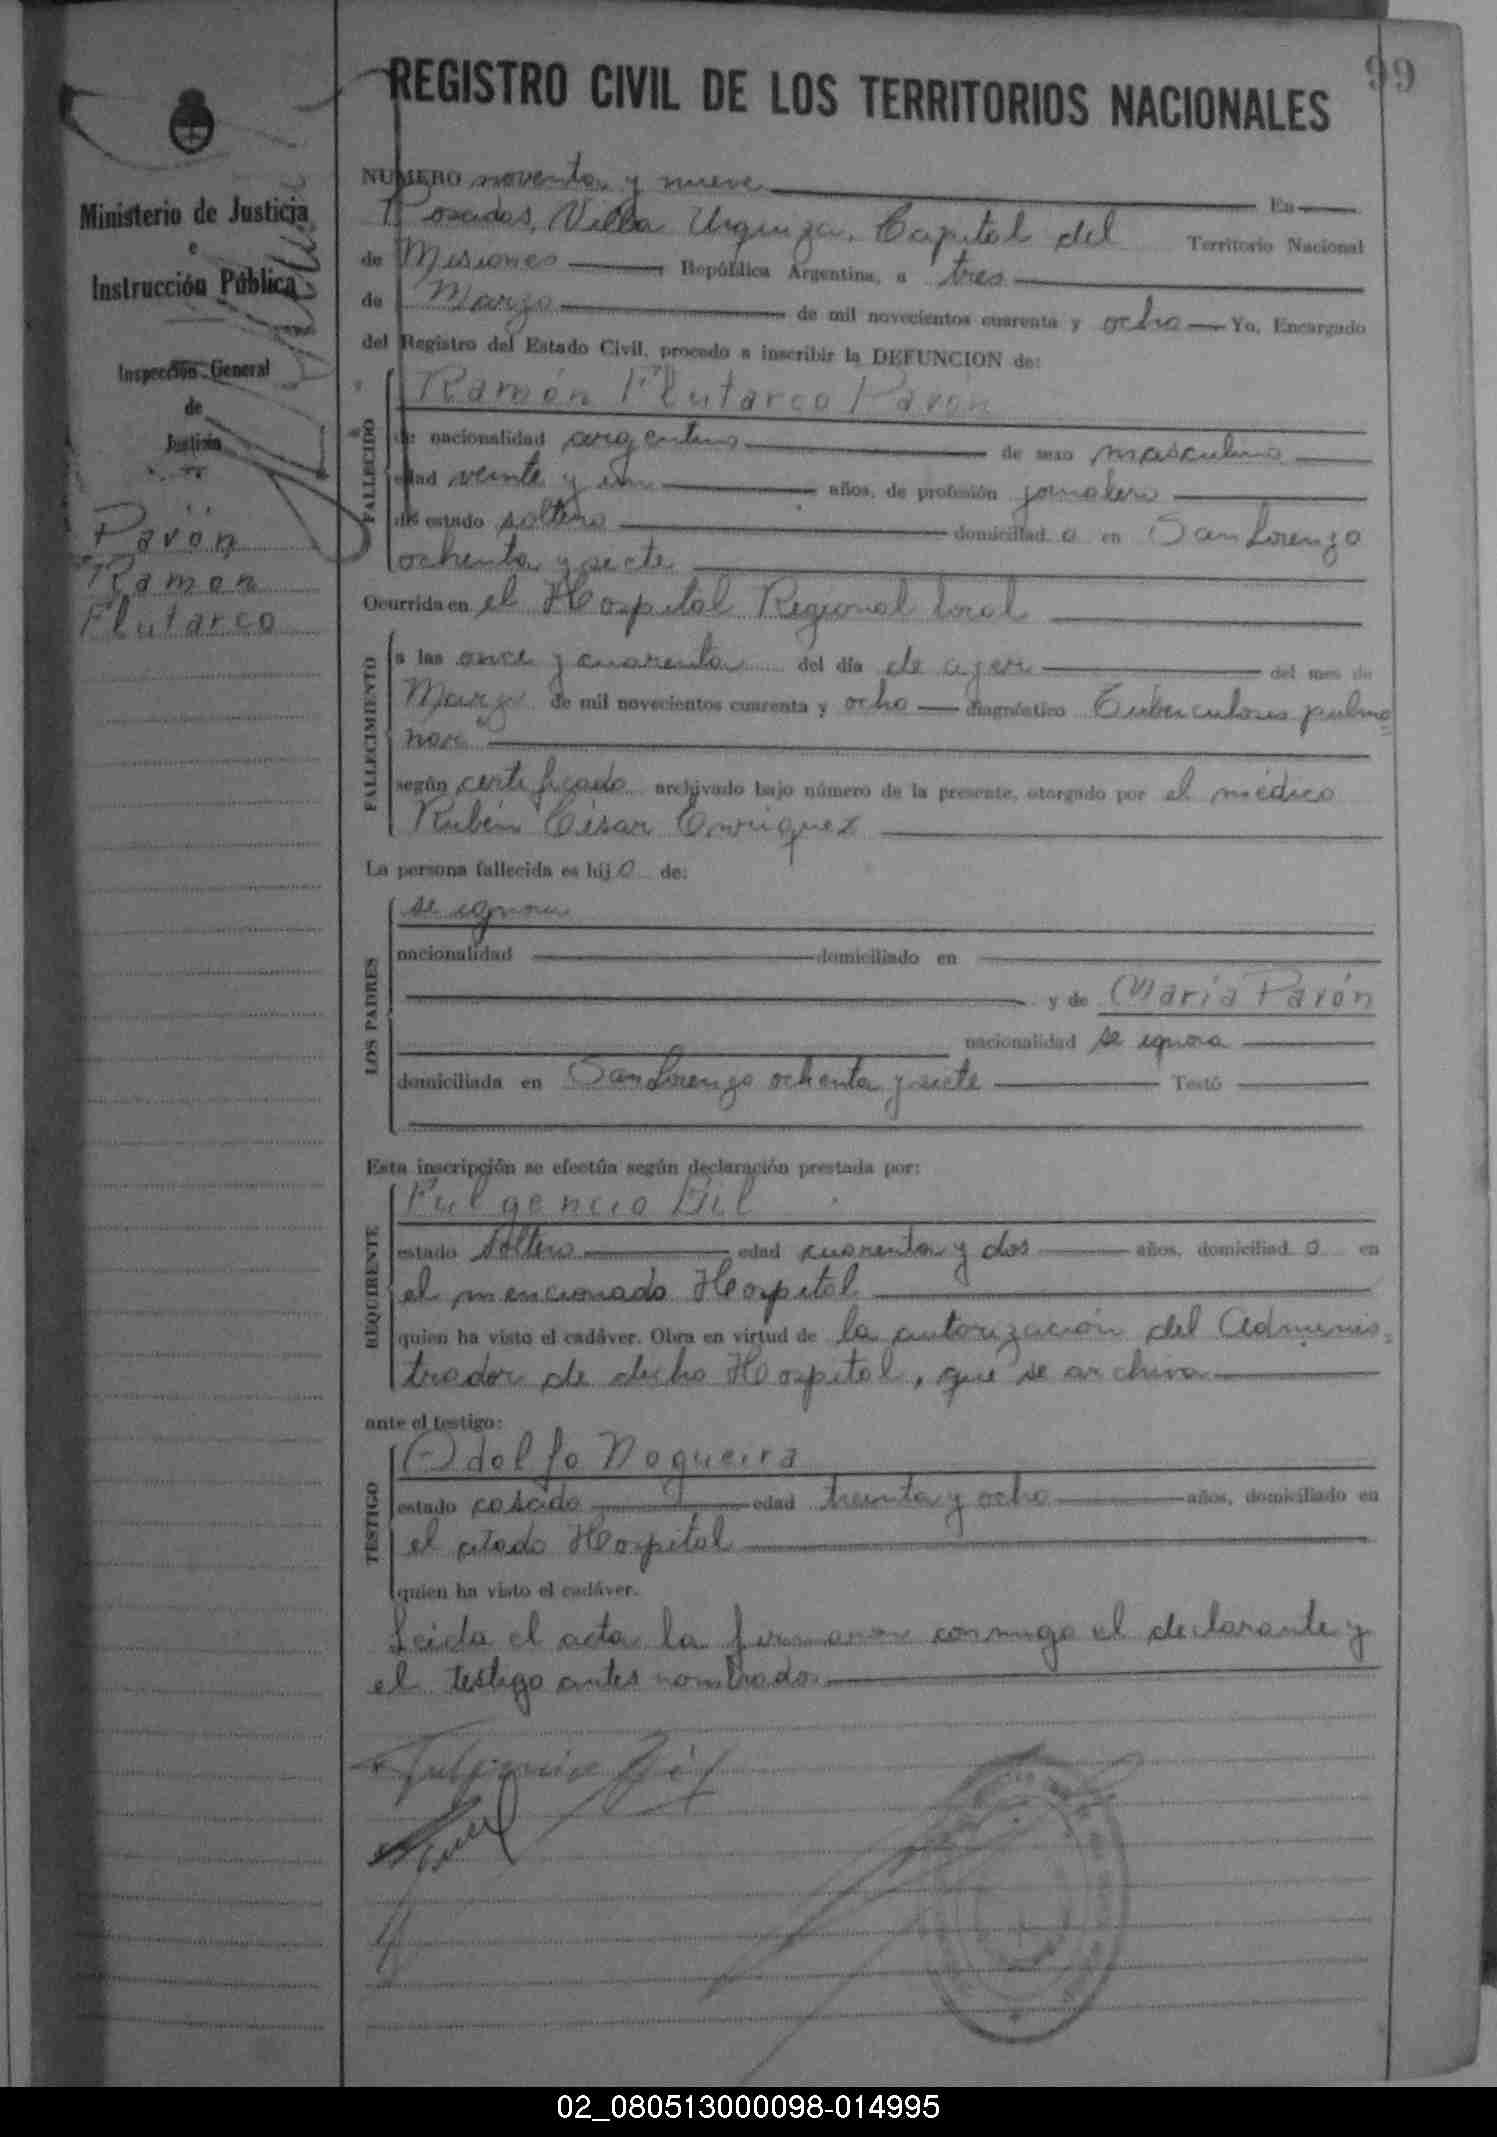 99
REGISTRO CIVIL DE LOS TERRITORIOS NACIONALES
Ministerio de Justicia
e
Instrucción Pública
Inspección General
de
Justicia
Pavón
Ramon
Plutarco
NUMERO noventa y nueve En
Posadas, Villa Urquiza, Capital del Territorio Nacional
de Misiones República Argentina, a tres
de Marzo de mil novecientos cuarenta y ocho Yo, Encargado
del Registro del Estado Civil, procedo a inscribir la DEFUNCION de:
FALLECIDO
Ramón Plutarco Pavón
de nacionalidad argentino de sexo masculino
edad veinte y un años, de profesión jornalero
de estado soltero domiciliad o en San Lorenzo
ochenta y siete
Ocurrida en el Hospital Regional local
FALLECIMIENTO
a las once y cuarenta del día de ayer del mes de
Marzo de mil novecientos cuarenta y ocho diagnóstico Tuberculosis pulmo=
nar
según certificado archivado bajo número de la presente, otorgado por el médico
Rubén César Enriquez
La persona fallecida es hij o de:
LOS PADRES
se ignora
nacionalidad domiciliado en
y de María Pavón
nacionalidad se ignora
domiciliada en San Lorenzo ochenta y siete Testó
Esta inscripción se efectúa según declaración prestada por:
REQUIRENTE
Fulgencio Gil
estado soltero edad cuarenta y dos años, domiciliad o en
el mencionado Hospital
quien ha visto el cadáver. Obra en virtud de la autorización del Adminis=
trador de dicho Hospital, que se archiva
ante el testigo:
TESTIGO
Adolfo Nogueira
estado casado edad treinta y ocho años, domiciliado en
el citado Hospital
quien ha visto el cadáver.
Leida el acta la firmaron conmigo el declarante y
el testigo antes nombrado
Fulgencio Gil
02_080513000098-014995